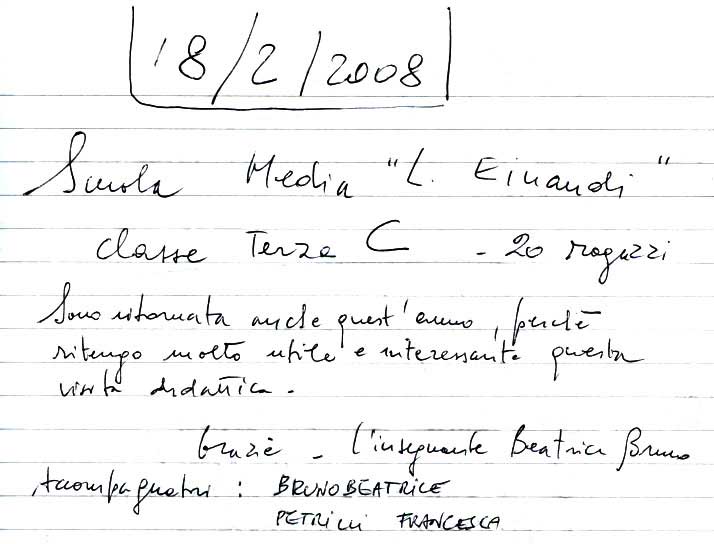 18/2/2008
Scuola Media "L. Einaudi"
classe Terza C - 20 ragazzi
Sono ritornata anche quest'anno, perchè
ritengo molto utile e interessante questa
visita didattica.
Grazie - l'insegnante Beatrice Bruno
Accompagnatori : BRUNO BEATRICE
PETRINI FRANCESCA